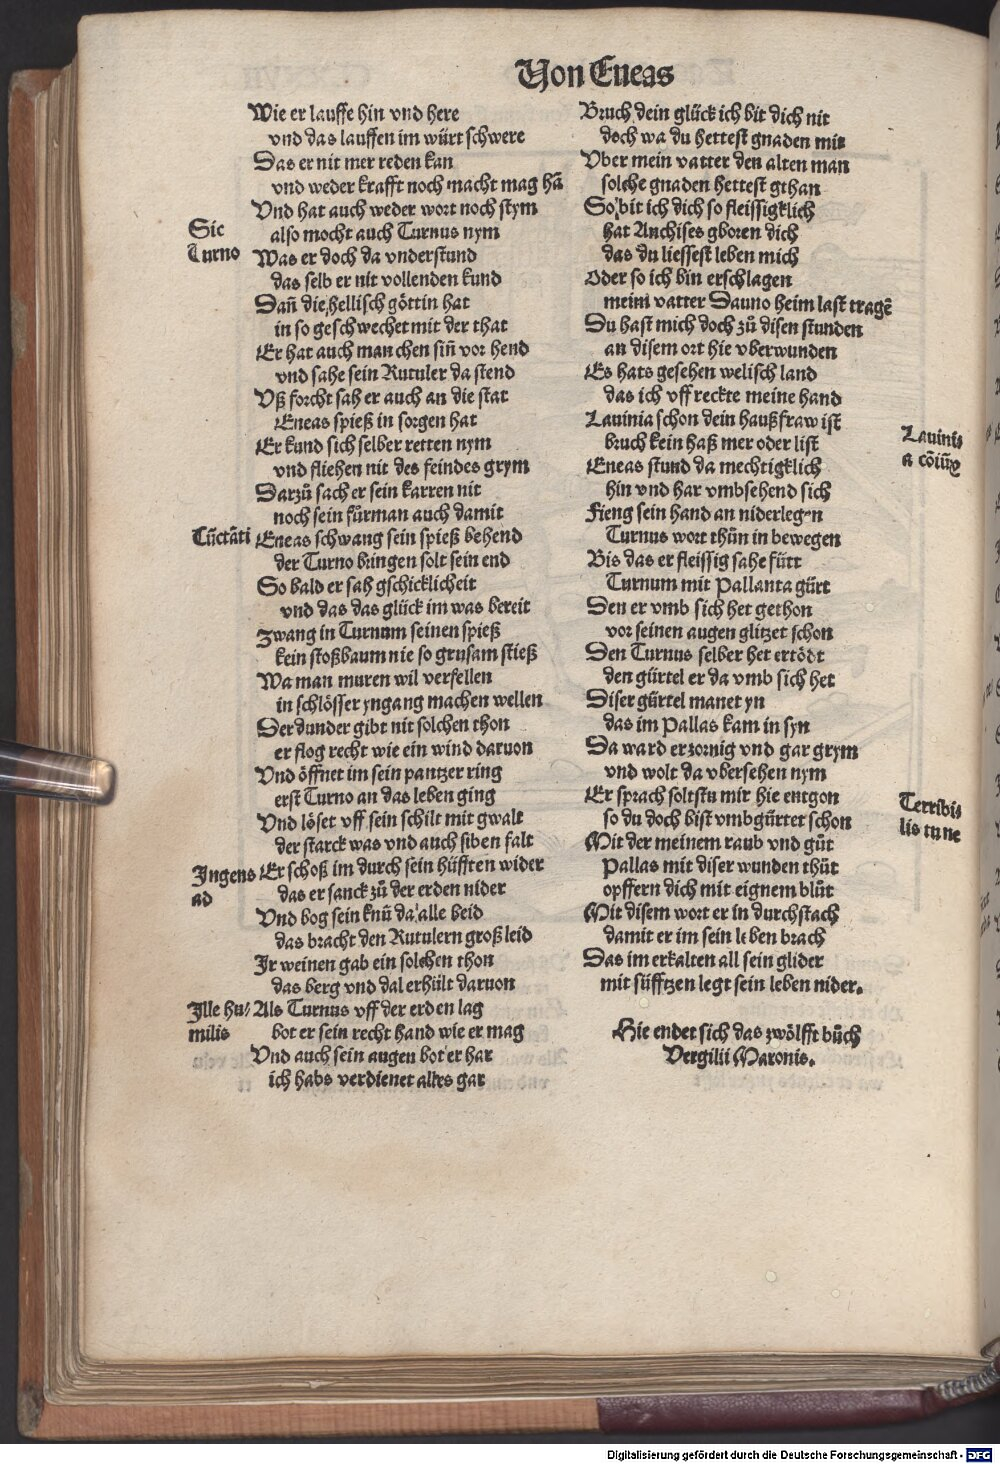 Von Eneas
Wie er lauffe hin vnd here
vnd das lauffen im würt schwere
Das er nit mer reden kan
vnd weder krafft noch macht mag hã
Vnd hat auch weder wort noch stym
Sic
Turno
also mocht auch Turnus nym
Was er doch da vnderstund
das selb er nit vollenden kund
Dañ die hellisch göttin hat
in so geschwechet mit der that
Er hat auch manchen siñ vor hend
vnd sahe sein Rutuler da stend
Vß forcht sah er auch an die stat
Eneas spieß in sorgen hat
Er kund sich selber retten nym
vnd fliehen nit des feindes grym
Darzů sach er sein karren nit
noch sein fůrman auch damit
Cũctãti
Eneas schwang sein spieß behend
der Turno bringen solt sein end
So bald er sah gschicklicheit
vnd das das glück im was bereit
Zwang in Turnum seinen spieß
kein stoßbaum nie so grusam stieß
Wa man muren wil verfellen
in schlösser yngang machen wellen
Der dunder gibt nit solchen thon
er flog recht wie ein wind daruon
Vnd öffnet im sein pantzer ring
erst Turno an das leben ging
Vnd löset vff sein schilt mit gwalt
der starck was vnd auch siben falt
Ingens
ad
Er schoß im durch sein hüfften wider
das er sanck zů der erden nider
Vnd bog sein knü da alle beid
das bracht den Rutulern groß leid
Ir weinen gab ein solchen thon
das berg vnd dal erhült daruon
Ille hu/
milis
Als Turnus vff der erden lag
bot er sein recht hand wie er mag
Vnd auch sein augen bot er har
ich habs verdienet alles gar
Bruch dein glück ich bit dich nit
doch wa du hettest gnaden mit
Vber mein vatter den alten man
solche gnaden hettest gthan
So bit ich dich so fleissigklich
hat Anchises gboren dich
das du liessest leben mich
Oder so ich bin erschlagen
meim vatter Dauno heim last tragẽ
Du hast mich doch zů disen stunden
an disem ort hie vberwunden
Es hats gesehen welisch land
das ich vff reckte meine hand
Lauinia schon dein haußfraw ist
Lauini
a cõiũx
bruch kein haß mer oder list
Eneas stund da mechtigklich
hin vnd har vmbsehend sich
Fieng sein hand an niderlegen
Turnus wort thün in bewegen
Bis das er fleissig sahe fürt
Turnum mit Pallanta gürt
Den er vmb sich het gethon
vor seinen augen glitzet schon
Den Turnus selber het ertödt
den gürtel er da vmb sich het
Diser gürtel manet yn
das im Pallas kam in syn
Da ward er zornig vnd gar grym
vnd wolt da vbersehen nym
Er sprach soltstu mir hie entgon
Terribi
lis tu ne
so du doch bist vmbgürtet schon
Mit der meinem raub vnd gůt
Pallas mit diser wunden thůt
opffern dich mit eignem blůt
Mit disem wort er in durchstach
damit er im sein leben brach
Das im erkalten all sein glider
mit süfftzen legt sein leben nider.
Hie endet sich das zwölfft bůch
Vergilii Maronis.
Digitalisierung gefördert durch die Deutsche Forschungsgemeinschaft - DFG